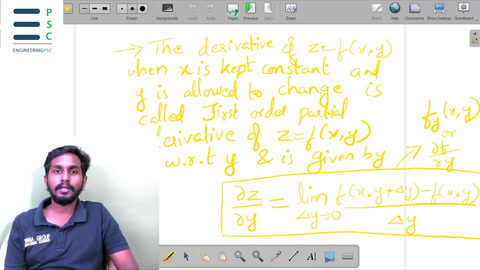 P
S
C
ENGINEERINGPSC
Backgrounds
Undo
Redo
Pages
Previous
Next
Erase
Board
Web
Documents
Show Desktop
OpenBoard
→ The derivative of z=f(x,y)
when x is kept constant and
y is allowed to change is
called First order partial
derivative of z=f(x,y)
w.r.t y & is given by
fy(x,y)
or
∂f/∂y
∂z/∂y = lim Δy→0 f(x,y+Δy)-f(x,y)/Δy